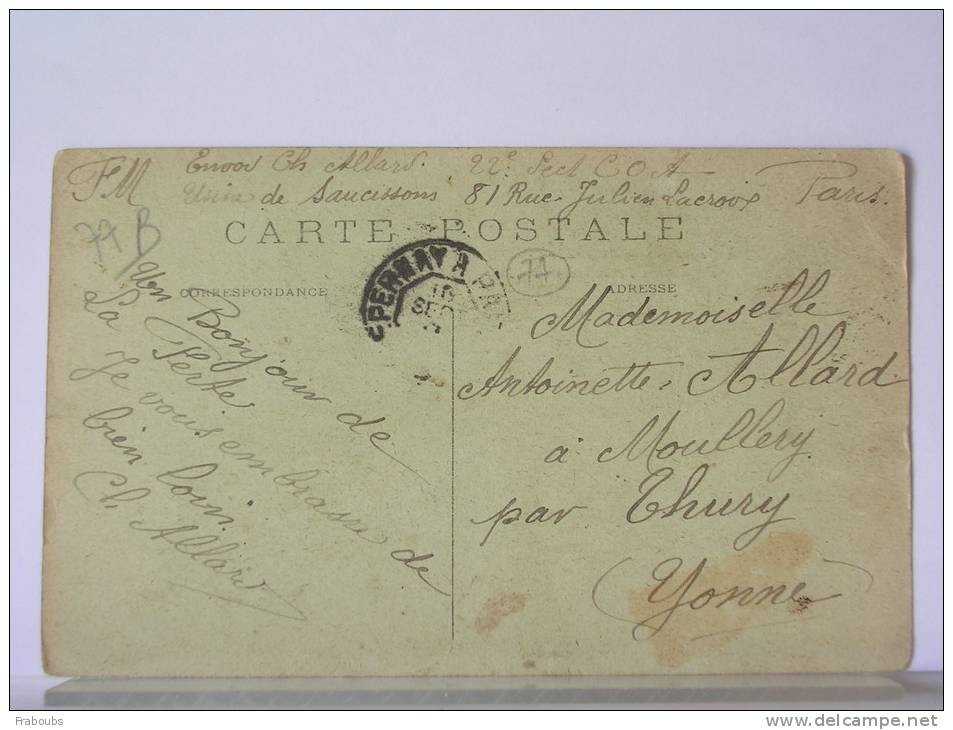 FM
Envoi Ch Allard. 22e Sect C O A
Usine de Saucissons 81 Rue Julien Lacroix Paris.
CARTE POSTALE
77B
77
CORRESPONDANCE
ADRESSE
EPERNAY
Un Bonjour de
La Ferté
Je vous embrasse de
bien loin
Ch Allard
Mademoiselle
Antoinette Allard
à Moullery
par Thury
(Yonne)
Fraboubs
www.delcampe.net